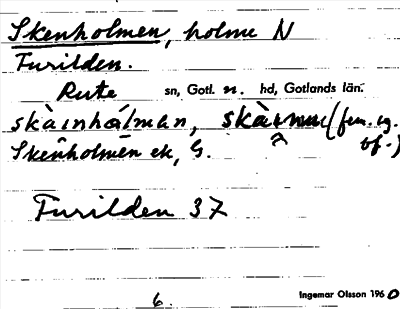 Skenholmen, holme N
Furilden.
Rute sn, Gotl. n. hd, Gotlands län.
skàinhålman, (fem. sg.
bf.)
Skenholmen ek, G.
Furilden 37
6.
Ingemar Olsson 1960